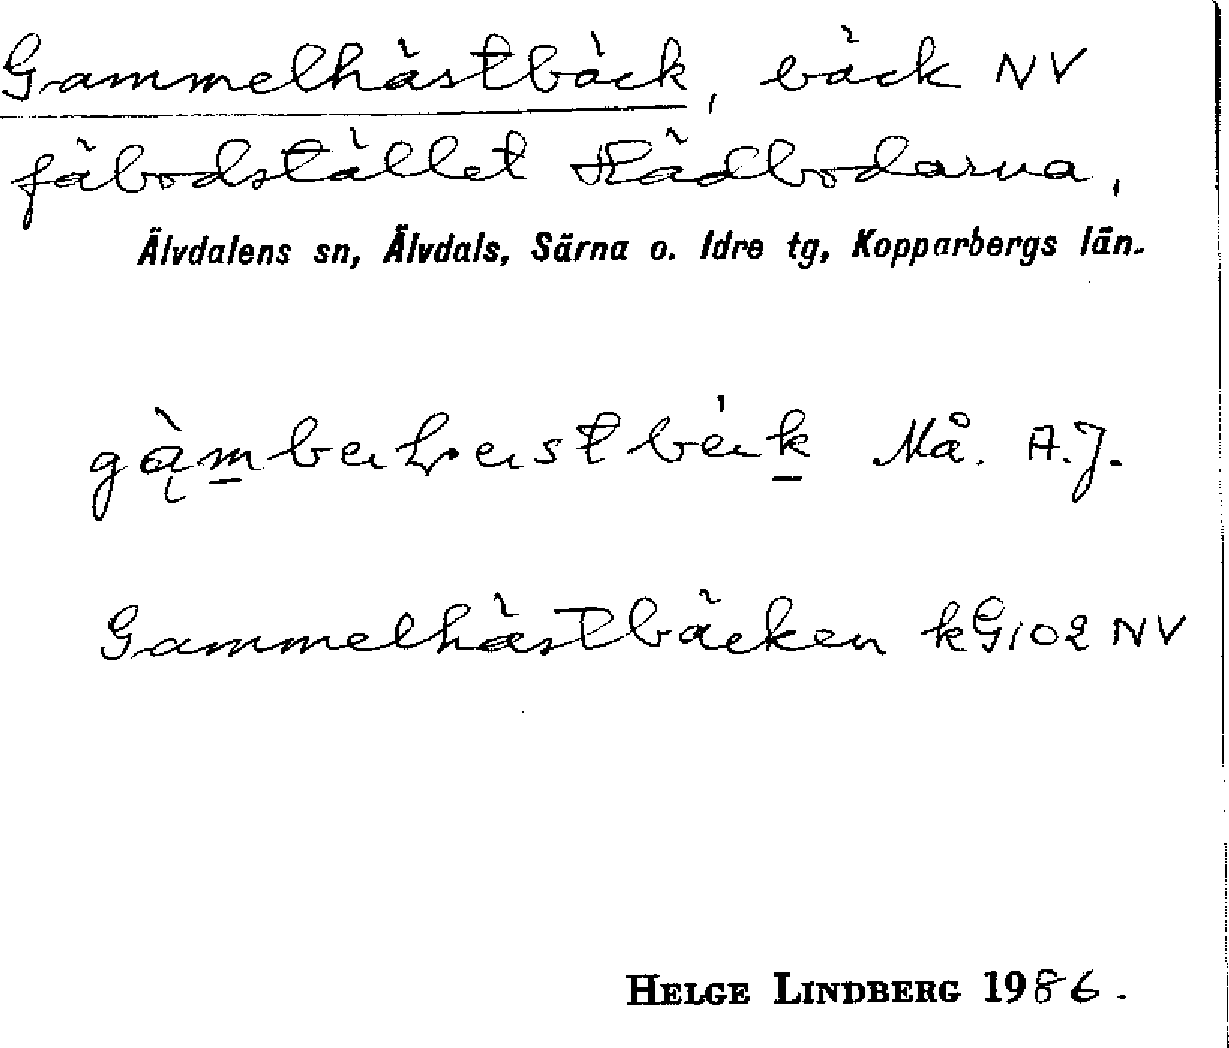 Gammelhästbäck, bäck NV
fäbodstället Rädbodarna,
Älvdalens sn, Älvdals, Särna o. Idre tg, Kopparbergs län.
Må. A.J.
Gammelhästbäcken kG102 NV
HELGE LINDBERG 1986.